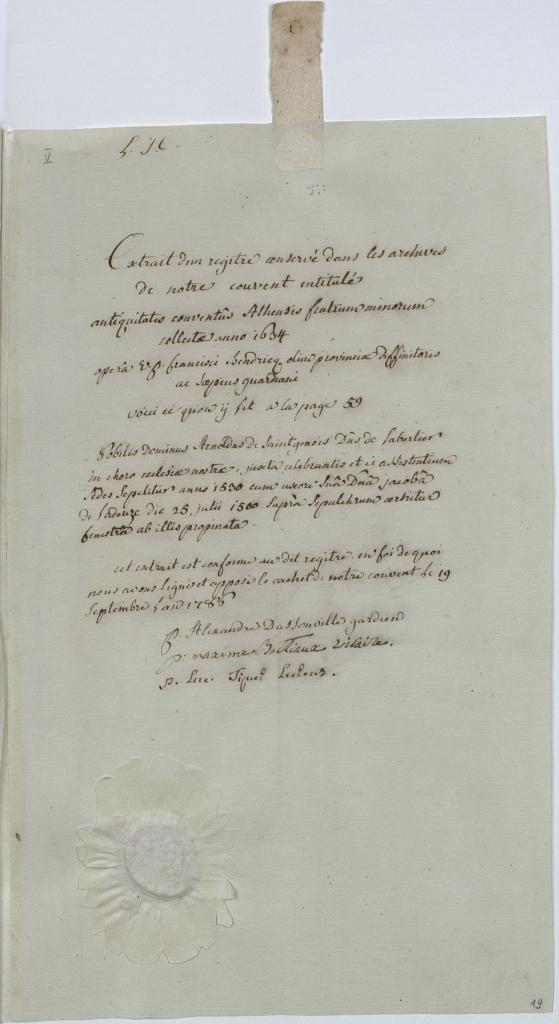 V
Extrait d'un regitre conservé dans les archives
de notre couvent intitulé
antiquitates conventûs Athensis fratrum minorum
collectæ anno 1634
operâ V. P. francisci hendricq olim provinciæ diffinitoris
ac sæpius guardiani
voici ce qu'on ij lit a la page 59
Nobilis Dominus Arnoldus de Saintgenois Dñs de
in choro ecclesiæ nostræ, juxta celebrantis et ei assistentium
sedes sepelitur anno 1530 cum uxore suâ Dñâ jacobâ
de die 25 julii 1500 suprà sepulchrum cernitur
fenestra ab illis propinata.
cet extrait est conforme au dit regitre. en foi de quoi
nous avons signé et apposé le cachet de notre couvent le 19
septembre l'an 1788
p. Alexandre Dassonville gardien
p. maxime vicaire.
p. Luc
19